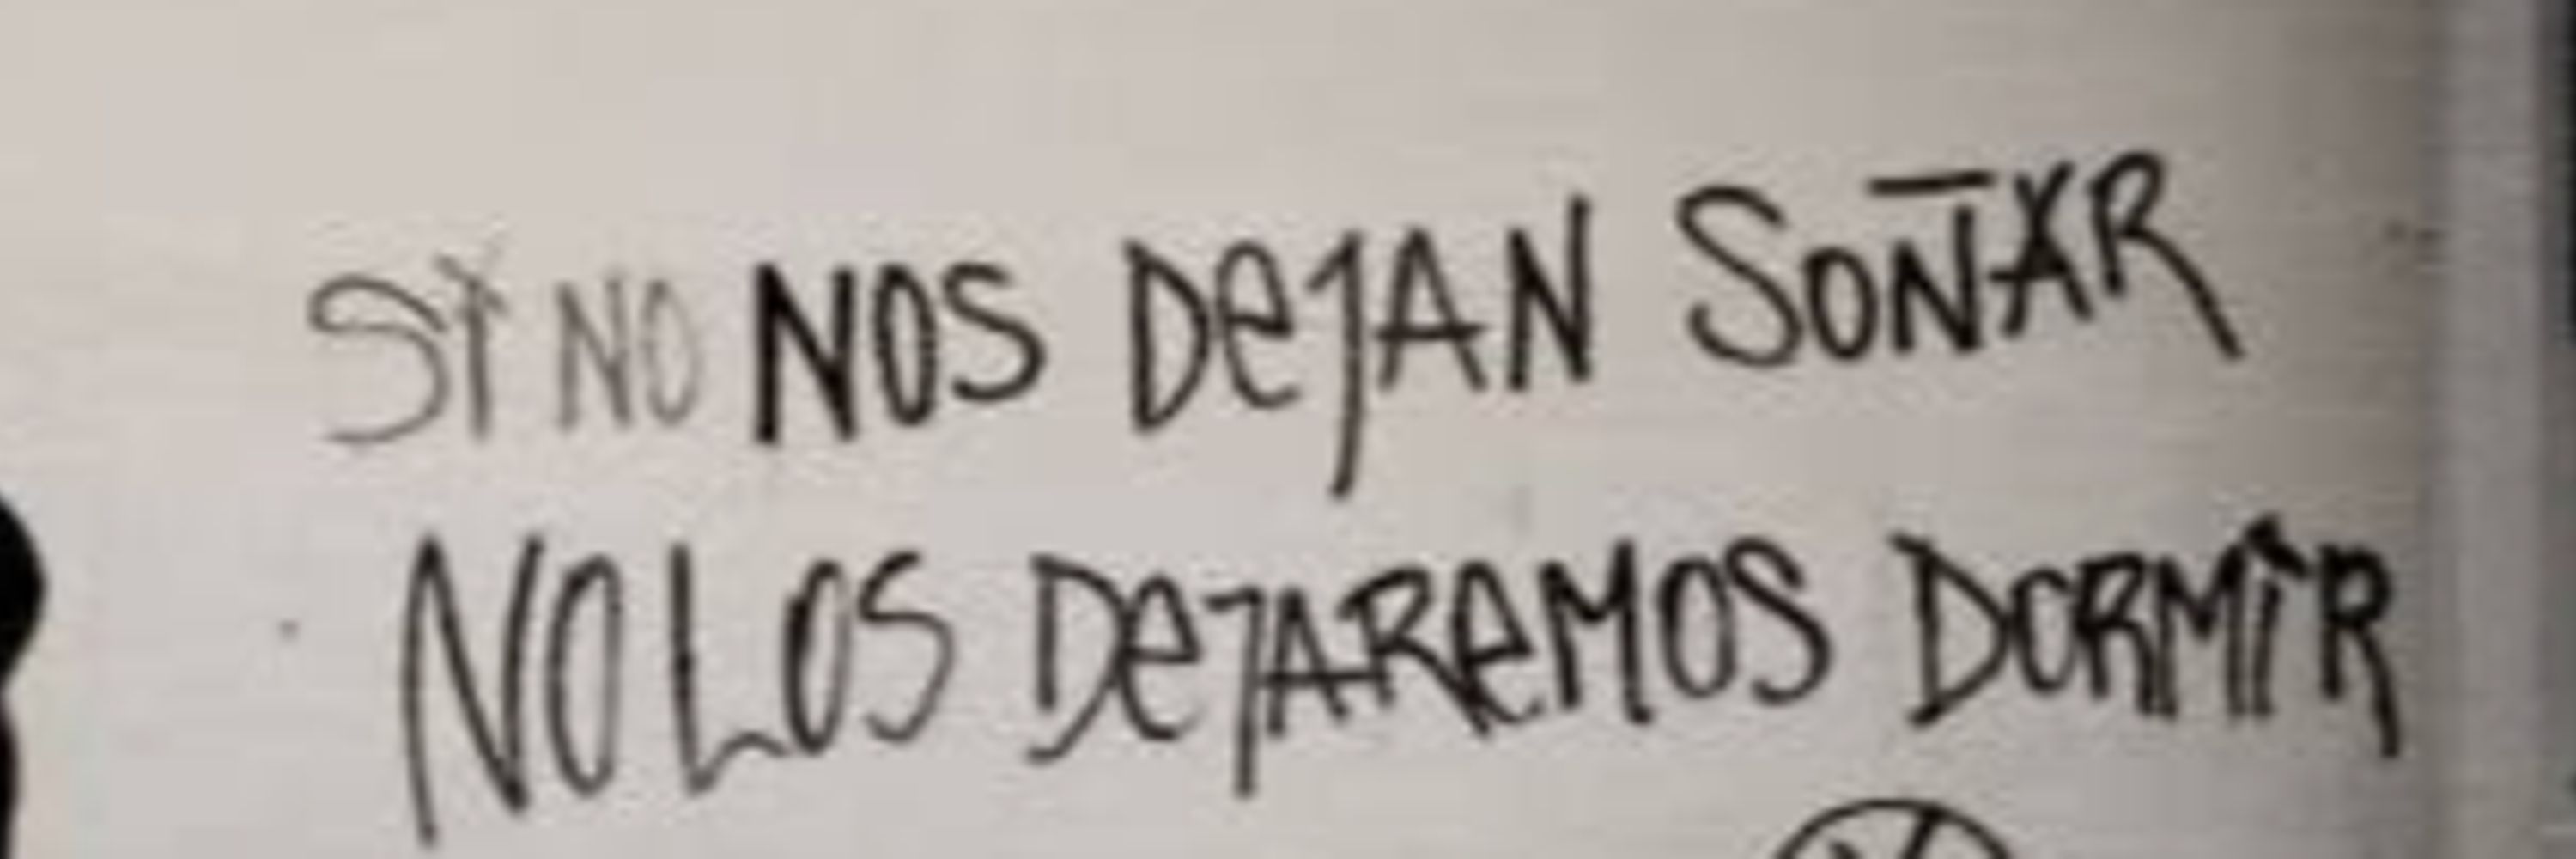 SI NO NOS DEJAN SOÑAR
NO LOS DEJAREMOS DORMIR